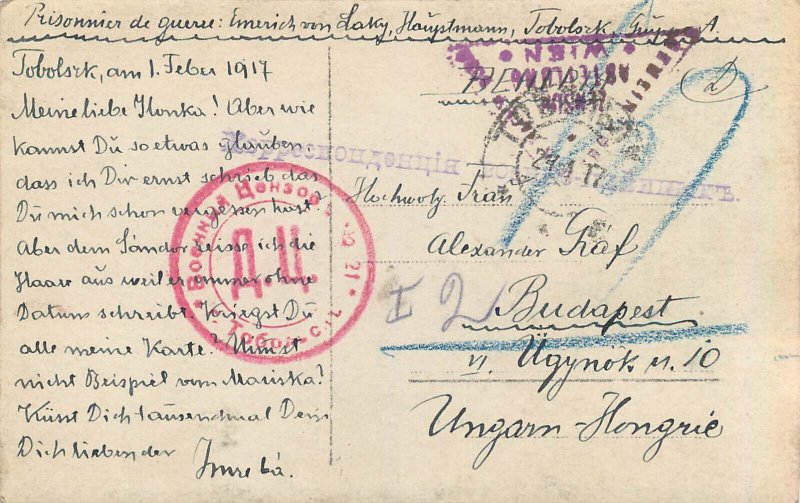 Prisonnier de guerre: Emerich von Laky, Hauptmann, Tobolsk, Gruppe A.
Tobolszk, am 1. Feber 1917
Meine liebe Ilonka! Aber wie
kannst Du so etwas glauben,
dass ich Dir ernst schrieb das
Du mich schon vergessen hast?
Aber dem Sándor reisse ich die
Haare aus weil er immer ohne
Datum schreibt. Kriegst Du
alle meine Karte? Nimst
nicht Beispiel vom Mariska?
Küsst Dich tausendmal Dein
Dich liebender
Imre bá.
WIEN
Корреспонденція военноплѣнныхъ.
Военный Цензоръ № 21
Д.Ц.
г. Тобольскъ
17
Hochwolg. Frau
Alexander Graf
I 2
Budapest.
VI Ügynök u. 10
Ungarn-Hongrie